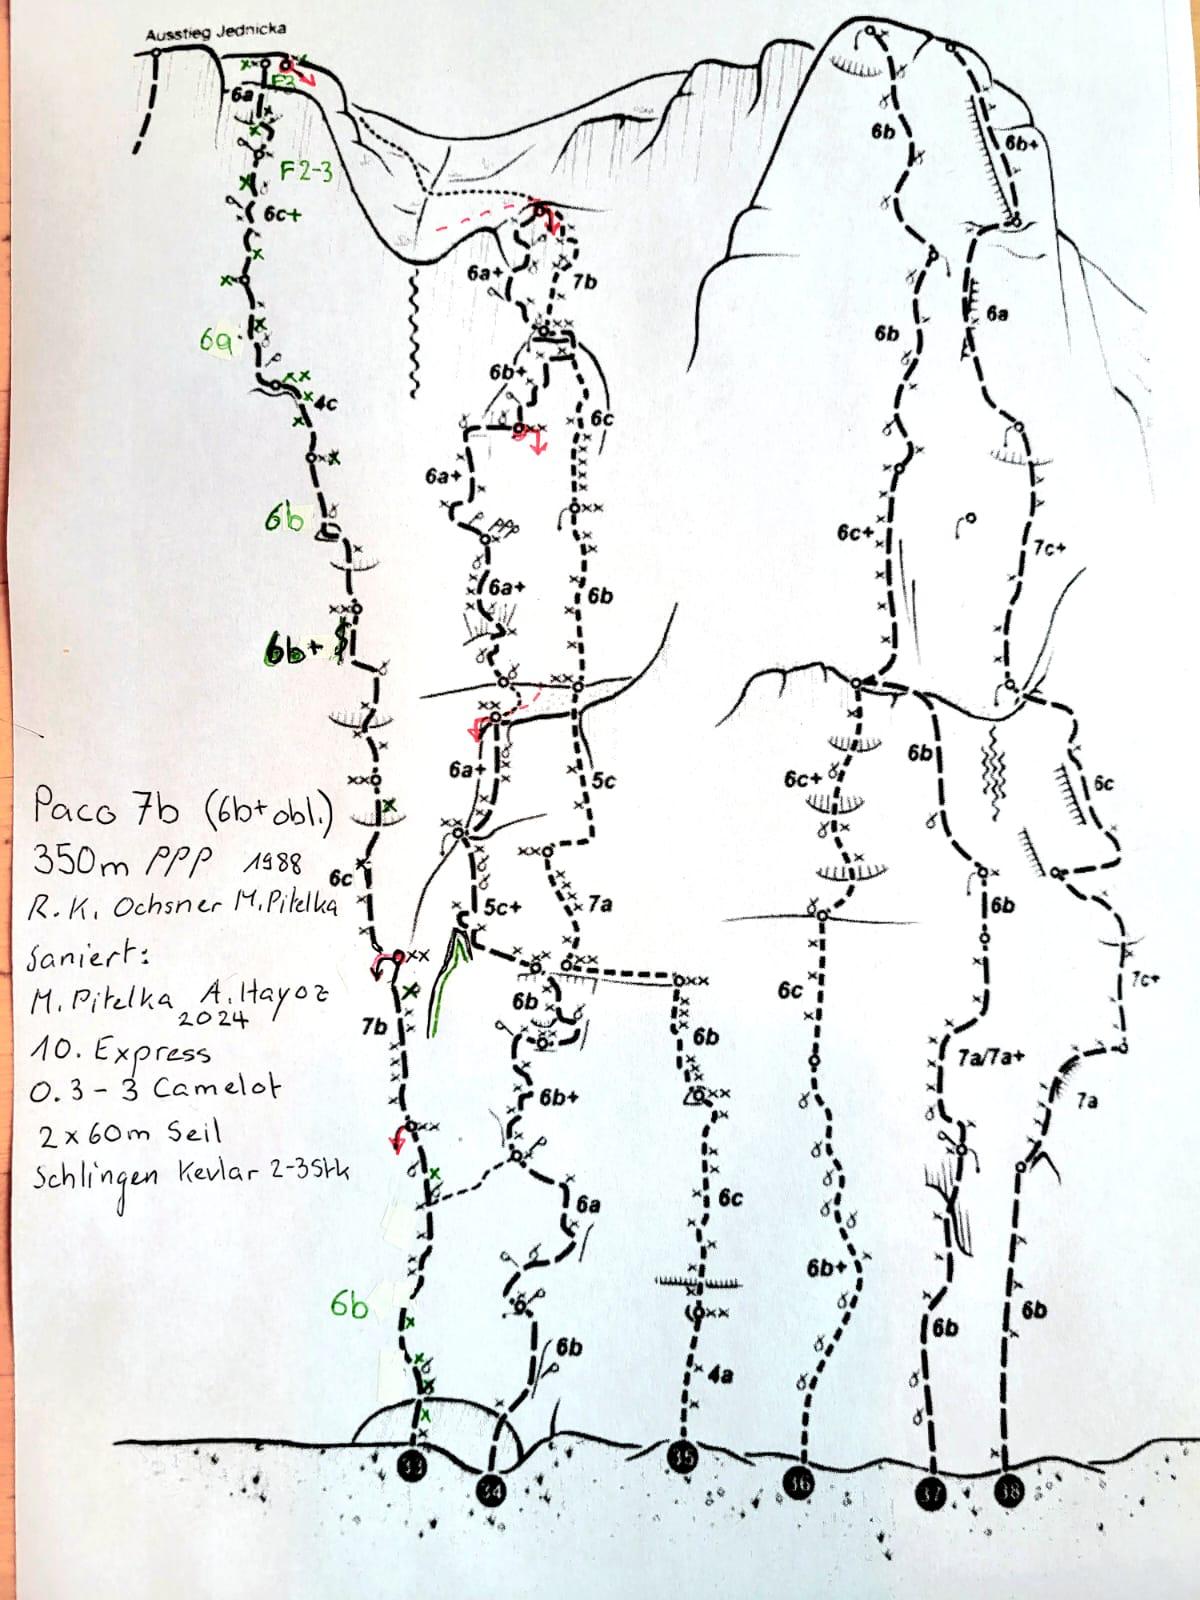 Ausstieg Jednicka
6a
F3
F2-3
6c+
6a
4c
6b
6b+
6c
7b
6b
6a+
7b
6b+
6c
6a+
PPP
6a+
6b
6a+
5c
5c+
7a
6b
6b
6b+
6c
6a
6b
4a
6b
6b+
6b
6a
6c+
7c+
6c+
6b
6c
6b
6c
7c+
7a/7a+
7a
6b+
6b
6b
Paco 7b (6b+ obl.)
350m PPP 1988
R.K. Ochsner M.Pitelka
Saniert:
M. Pitelka A. Hayoz
2024
10. Express
0.3-3 Camelot
2x60m Seil
Schlingen Kevlar 2-3Stk
33
34
35
36
37
38